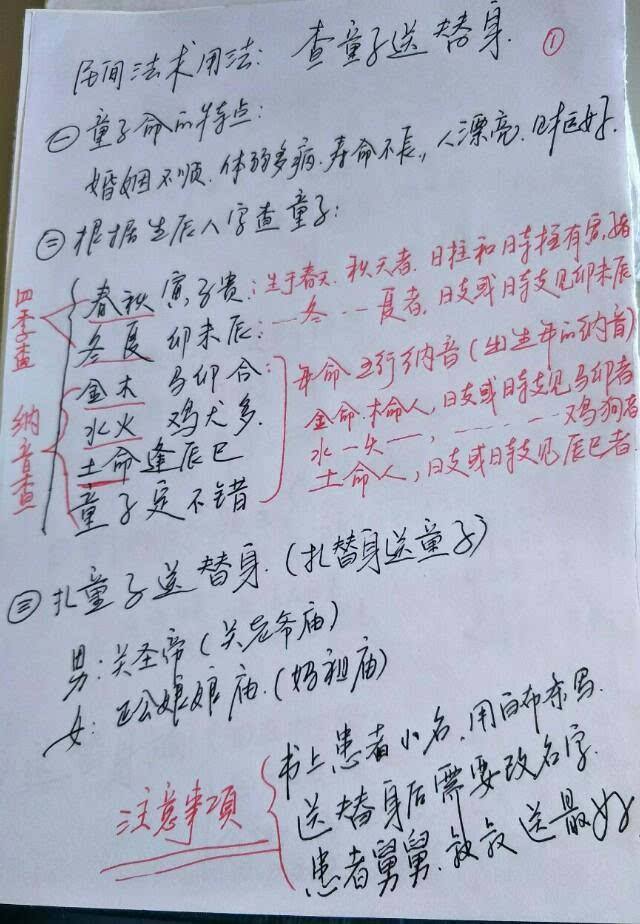 民间法术用法: 查童子送替身. ①
㊀童子命的特点:
婚姻不顺. 体弱多病. 寿命不长, 人漂亮. 日柱好.
㊁根据生辰八字查童子:
四季查
春秋 寅子贵: 生于春天. 秋天者. 日柱和时柱有寅, 子者
冬夏 卯未辰: …冬…夏者, 日支或日时支见卯未辰
纳音查
金木 马卯合: 年命五行纳音(出生年的纳音)
金命. 木命人, 日支或日时支见马卯者
水火 鸡犬多. 水一火一, ……鸡狗者
土命逢辰巳 土命人, 日支或日时支见辰巳者.
童子定不错
㊂扎童子送替身. (扎替身送童子)
男: 关圣帝(关老爷庙)
女: 娘娘庙. (妈祖庙)
注意事项
书上患者小名, 用白布条写.
送替身后需要改名字.
患者舅舅. 叔叔送最好